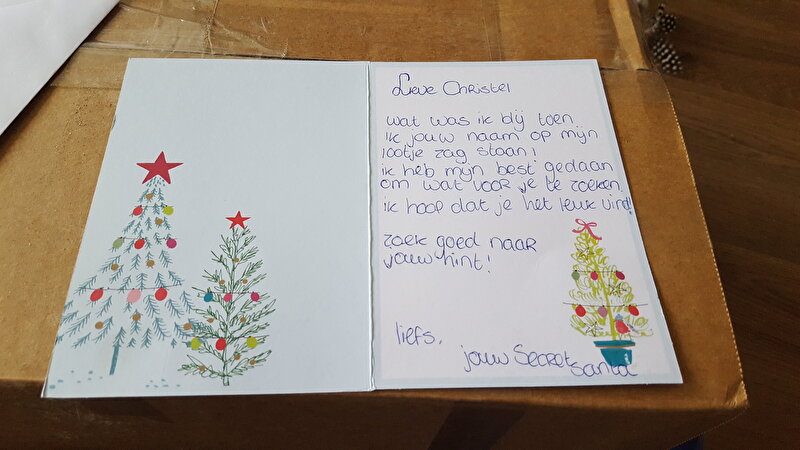 Lieve Christel
wat was ik blij toen
ik jouw naam op mijn
lootje zag staan!
ik heb mijn best gedaan
om wat voor je te zoeken.
ik hoop dat je het leuk vind!
zoek goed naar
jouw hint!
liefs,
jouw Secret
Santa